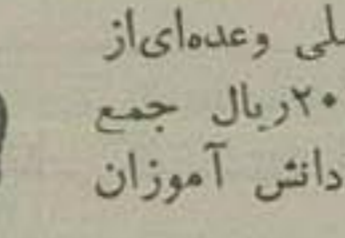 وعده‌ای‌از
۲۰ریال جمع
دانش آموزان